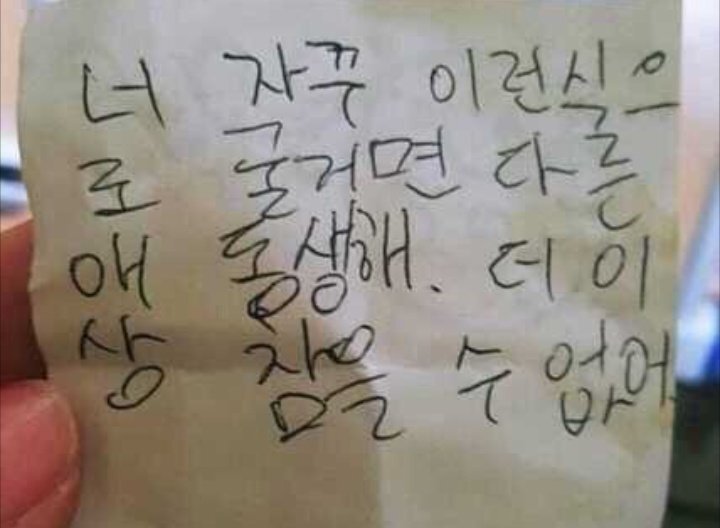 너 자꾸 이런식으
로 굴거면 다른
애 동생해. 더 이
상 잠을 수 없어.